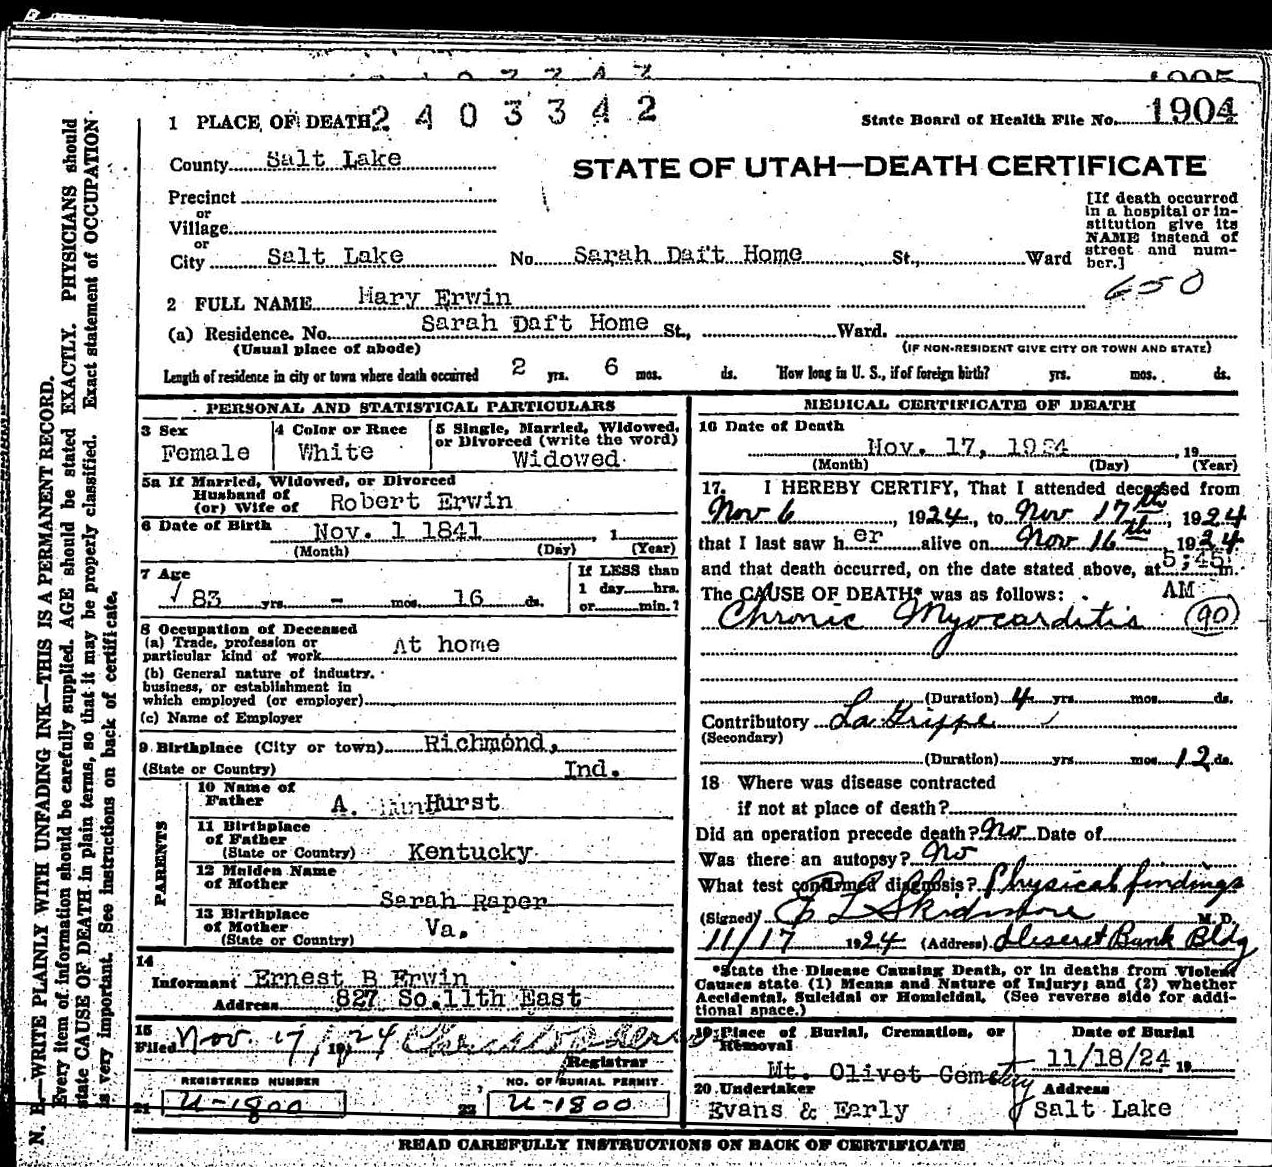 1904
1 PLACE OF DEATH 2403342 State Board of Health File No. 1904
County Salt Lake
STATE OF UTAH—DEATH CERTIFICATE
Precinct
or
Village
or
City Salt Lake No. Sarah Daft Home St., Ward
[If death occurred in a hospital or institution give its NAME instead of street and number.]
650
2 FULL NAME Mary Erwin
(a) Residence. No. Sarah Daft Home St., Ward.
(Usual place of abode) (IF NON-RESIDENT GIVE CITY OR TOWN AND STATE)
Length of residence in city or town where death occurred 2 yrs. 6 mos. ds. How long in U. S., if of foreign birth? yrs. mos. ds.
PERSONAL AND STATISTICAL PARTICULARS
3 Sex
Female
4 Color or Race
White
5 Single, Married, Widowed,
or Divorced (write the word)
Widowed
5a If Married, Widowed, or Divorced
Husband of
(or) Wife of Robert Erwin
6 Date of Birth Nov. 1 1841, 1
(Month) (Day) (Year)
7 Age
83 yrs. - mos. 16 ds.
If LESS than
1 day hrs.
or min.?
8 Occupation of Deceased
(a) Trade, profession or
particular kind of work At home
(b) General nature of industry,
business, or establishment in
which employed (or employer)
(c) Name of Employer
9 Birthplace (City or town) Richmond,
(State or Country) Ind.
PARENTS
10 Name of
Father A. Hurst
11 Birthplace
of Father
(State or Country) Kentucky
12 Maiden Name
of Mother
Sarah Raper
13 Birthplace
of Mother
(State or Country) Va.
14
Informant Ernest B Erwin
Address 827 So. 11th East
15
Filed Nov. 17, 1924
Registrar
REGISTERED NUMBER
21 U-1800
NO. OF BURIAL PERMIT
22 U-1800
MEDICAL CERTIFICATE OF DEATH
16 Date of Death
Nov. 17, 1924, 19
(Month) (Day) (Year)
17. I HEREBY CERTIFY, That I attended deceased from
Nov 6, 1924, to Nov 17th, 1924
that I last saw her alive on Nov 16th, 1924
and that death occurred, on the date stated above, at 5:45 m.
The CAUSE OF DEATH* was as follows: AM
Chronic Myocarditis (90)
(Duration) 4 yrs. mos. ds.
Contributory La Grippe
(Secondary)
(Duration) yrs. mos. 12 ds.
18 Where was disease contracted
if not at place of death?
Did an operation precede death? No Date of
Was there an autopsy? No
What test confirmed diagnosis? Physical findings
(Signed) Skidmore M. D.
11/17 1924 (Address) Deseret Bank Bldg
*State the Disease Causing Death, or in deaths from Violent
Causes state (1) Means and Nature of Injury; and (2) whether
Accidental, Suicidal or Homicidal. (See reverse side for addi-
tional space.)
19 Place of Burial, Cremation, or
Removal
Mt. Olivet Cemetery
Date of Burial
11/18/24 19
20 Undertaker
Evans & Early
Address
Salt Lake
READ CAREFULLY INSTRUCTIONS ON BACK OF CERTIFICATE
N. B.—WRITE PLAINLY WITH UNFADING INK—THIS IS A PERMANENT RECORD.
Every item of information should be carefully supplied. AGE should be stated EXACTLY. PHYSICIANS should
state CAUSE OF DEATH in plain terms, so that it may be properly classified. Exact statement of OCCUPATION
is very important. See instructions on back of certificate.